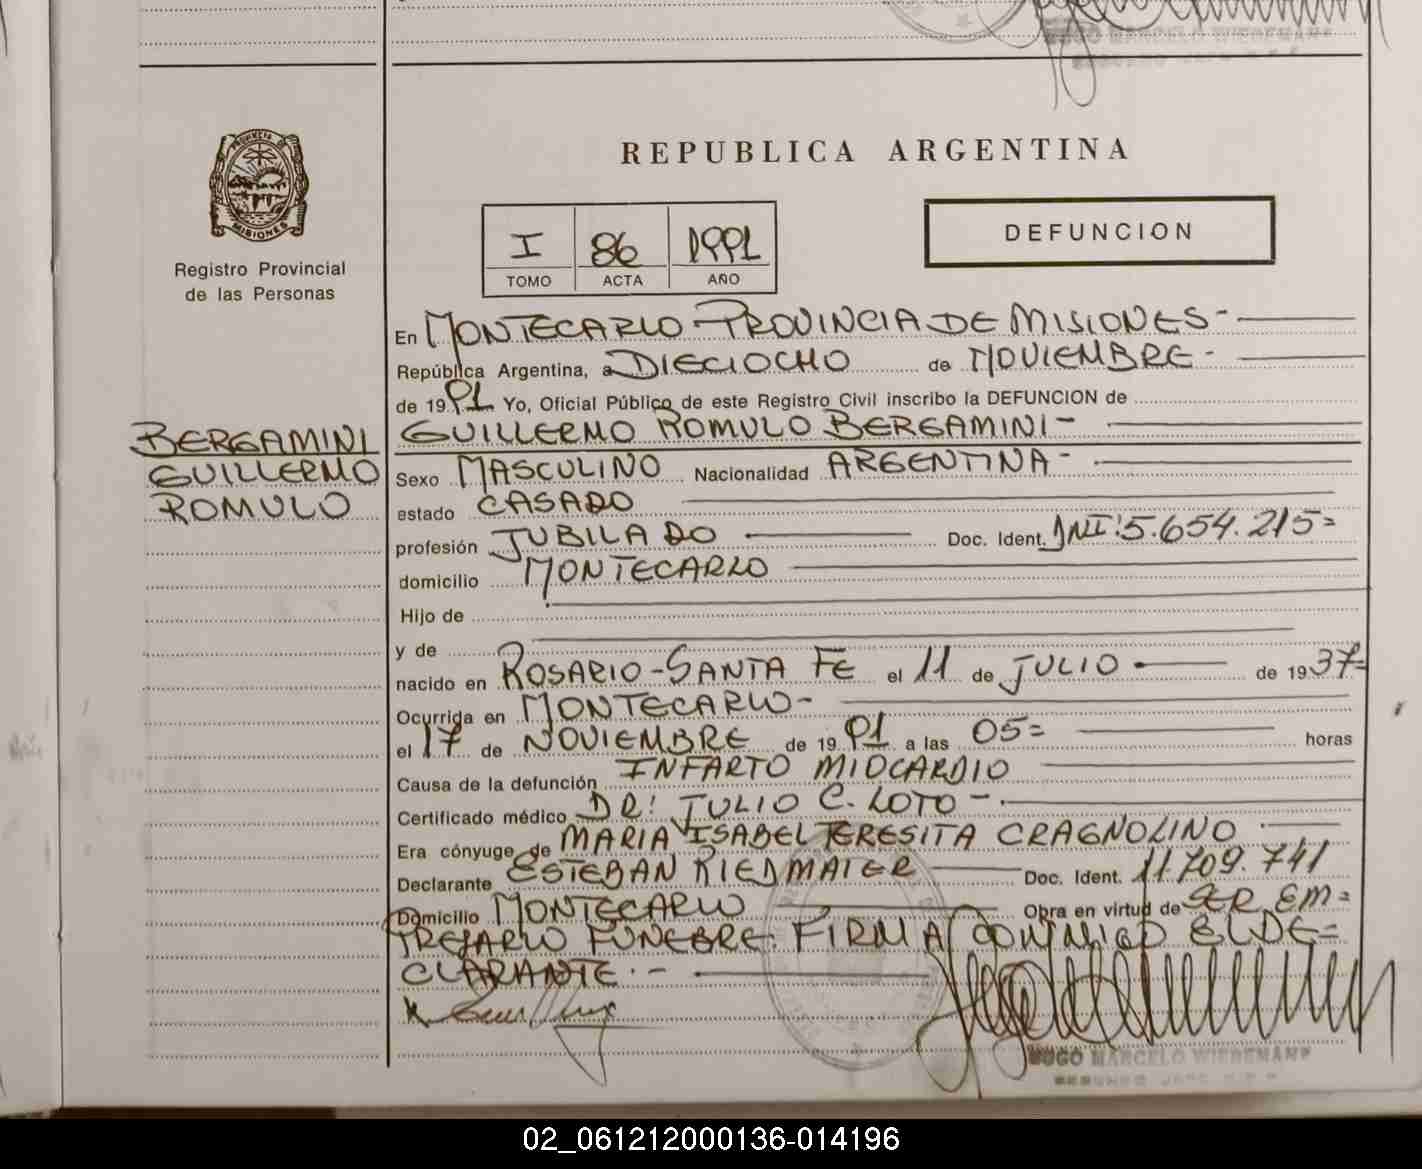 HUGO MARCELO WIEDEMANN
PROVINCIA DE
MISIONES
Registro Provincial
de las Personas
REPUBLICA ARGENTINA
I 86 1991
TOMO ACTA AÑO
DEFUNCION
En MONTECARLO - PROVINCIA DE MISIONES -
República Argentina, a DIECIOCHO de NOVIEMBRE -
de 1991 Yo, Oficial Público de este Registro Civil inscribo la DEFUNCION de
BERGAMINI
GUILLERMO
ROMULO
GUILLERMO ROMULO BERGAMINI -
Sexo MASCULINO Nacionalidad ARGENTINA -
estado CASADO
profesión JUBILADO Doc. Ident. DNI: 5.654.215=
domicilio MONTECARLO
Hijo de
y de
nacido en ROSARIO - SANTA FE el 11 de JULIO de 1937=
Ocurrida en MONTECARLO -
el 17 de NOVIEMBRE de 1991 a las 05= horas
Causa de la defunción INFARTO MIOCARDIO
Certificado médico DR: JULIO C. LOTO -
Era cónyuge de MARIA ISABEL TERESITA CRAGNOLINO
Declarante ESTEBAN RIEDMAIER Doc. Ident. 11.709.741
Domicilio MONTECARLO Obra en virtud de SER EM=
PRESARIO FUNEBRE. FIRMA CONMIGO EL DE=
CLARANTE. -
HUGO MARCELO WIEDEMANN
02_061212000136-014196